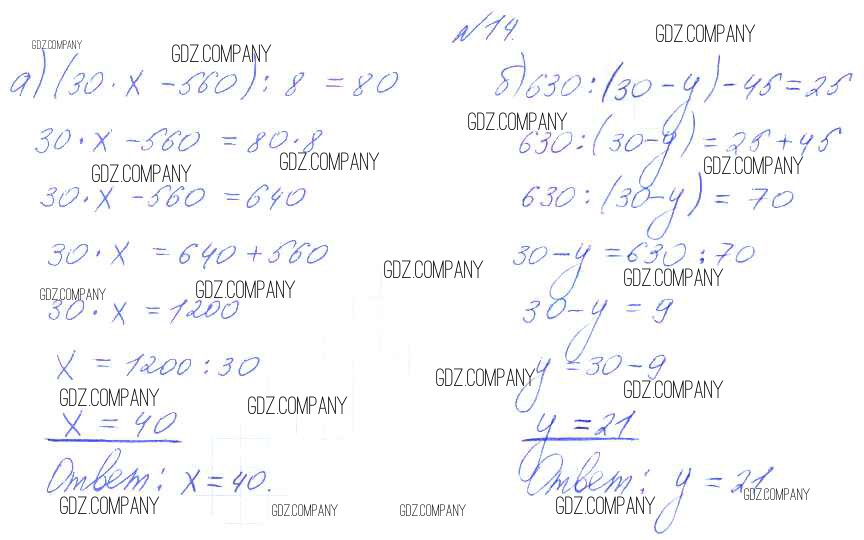 №14.
GDZ.COMPANY GDZ.COMPANY GDZ.COMPANY
а) (30 · x - 560) : 8 = 80
30 · x - 560 = 80 · 8
GDZ.COMPANY GDZ.COMPANY
30 · x - 560 = 640
30 · x = 640 + 560
GDZ.COMPANY GDZ.COMPANY
30 · x = 1200
x = 1200 : 30
GDZ.COMPANY GDZ.COMPANY
x = 40
Ответ: x = 40.
GDZ.COMPANY GDZ.COMPANY GDZ.COMPANY
б) 630 : (30 - y) - 45 = 25
GDZ.COMPANY
630 : (30 - y) = 25 + 45
GDZ.COMPANY
630 : (30 - y) = 70
30 - y = 630 : 70
GDZ.COMPANY GDZ.COMPANY
30 - y = 9
y = 30 - 9
GDZ.COMPANY GDZ.COMPANY
y = 21
Ответ: y = 21
GDZ.COMPANY GDZ.COMPANY